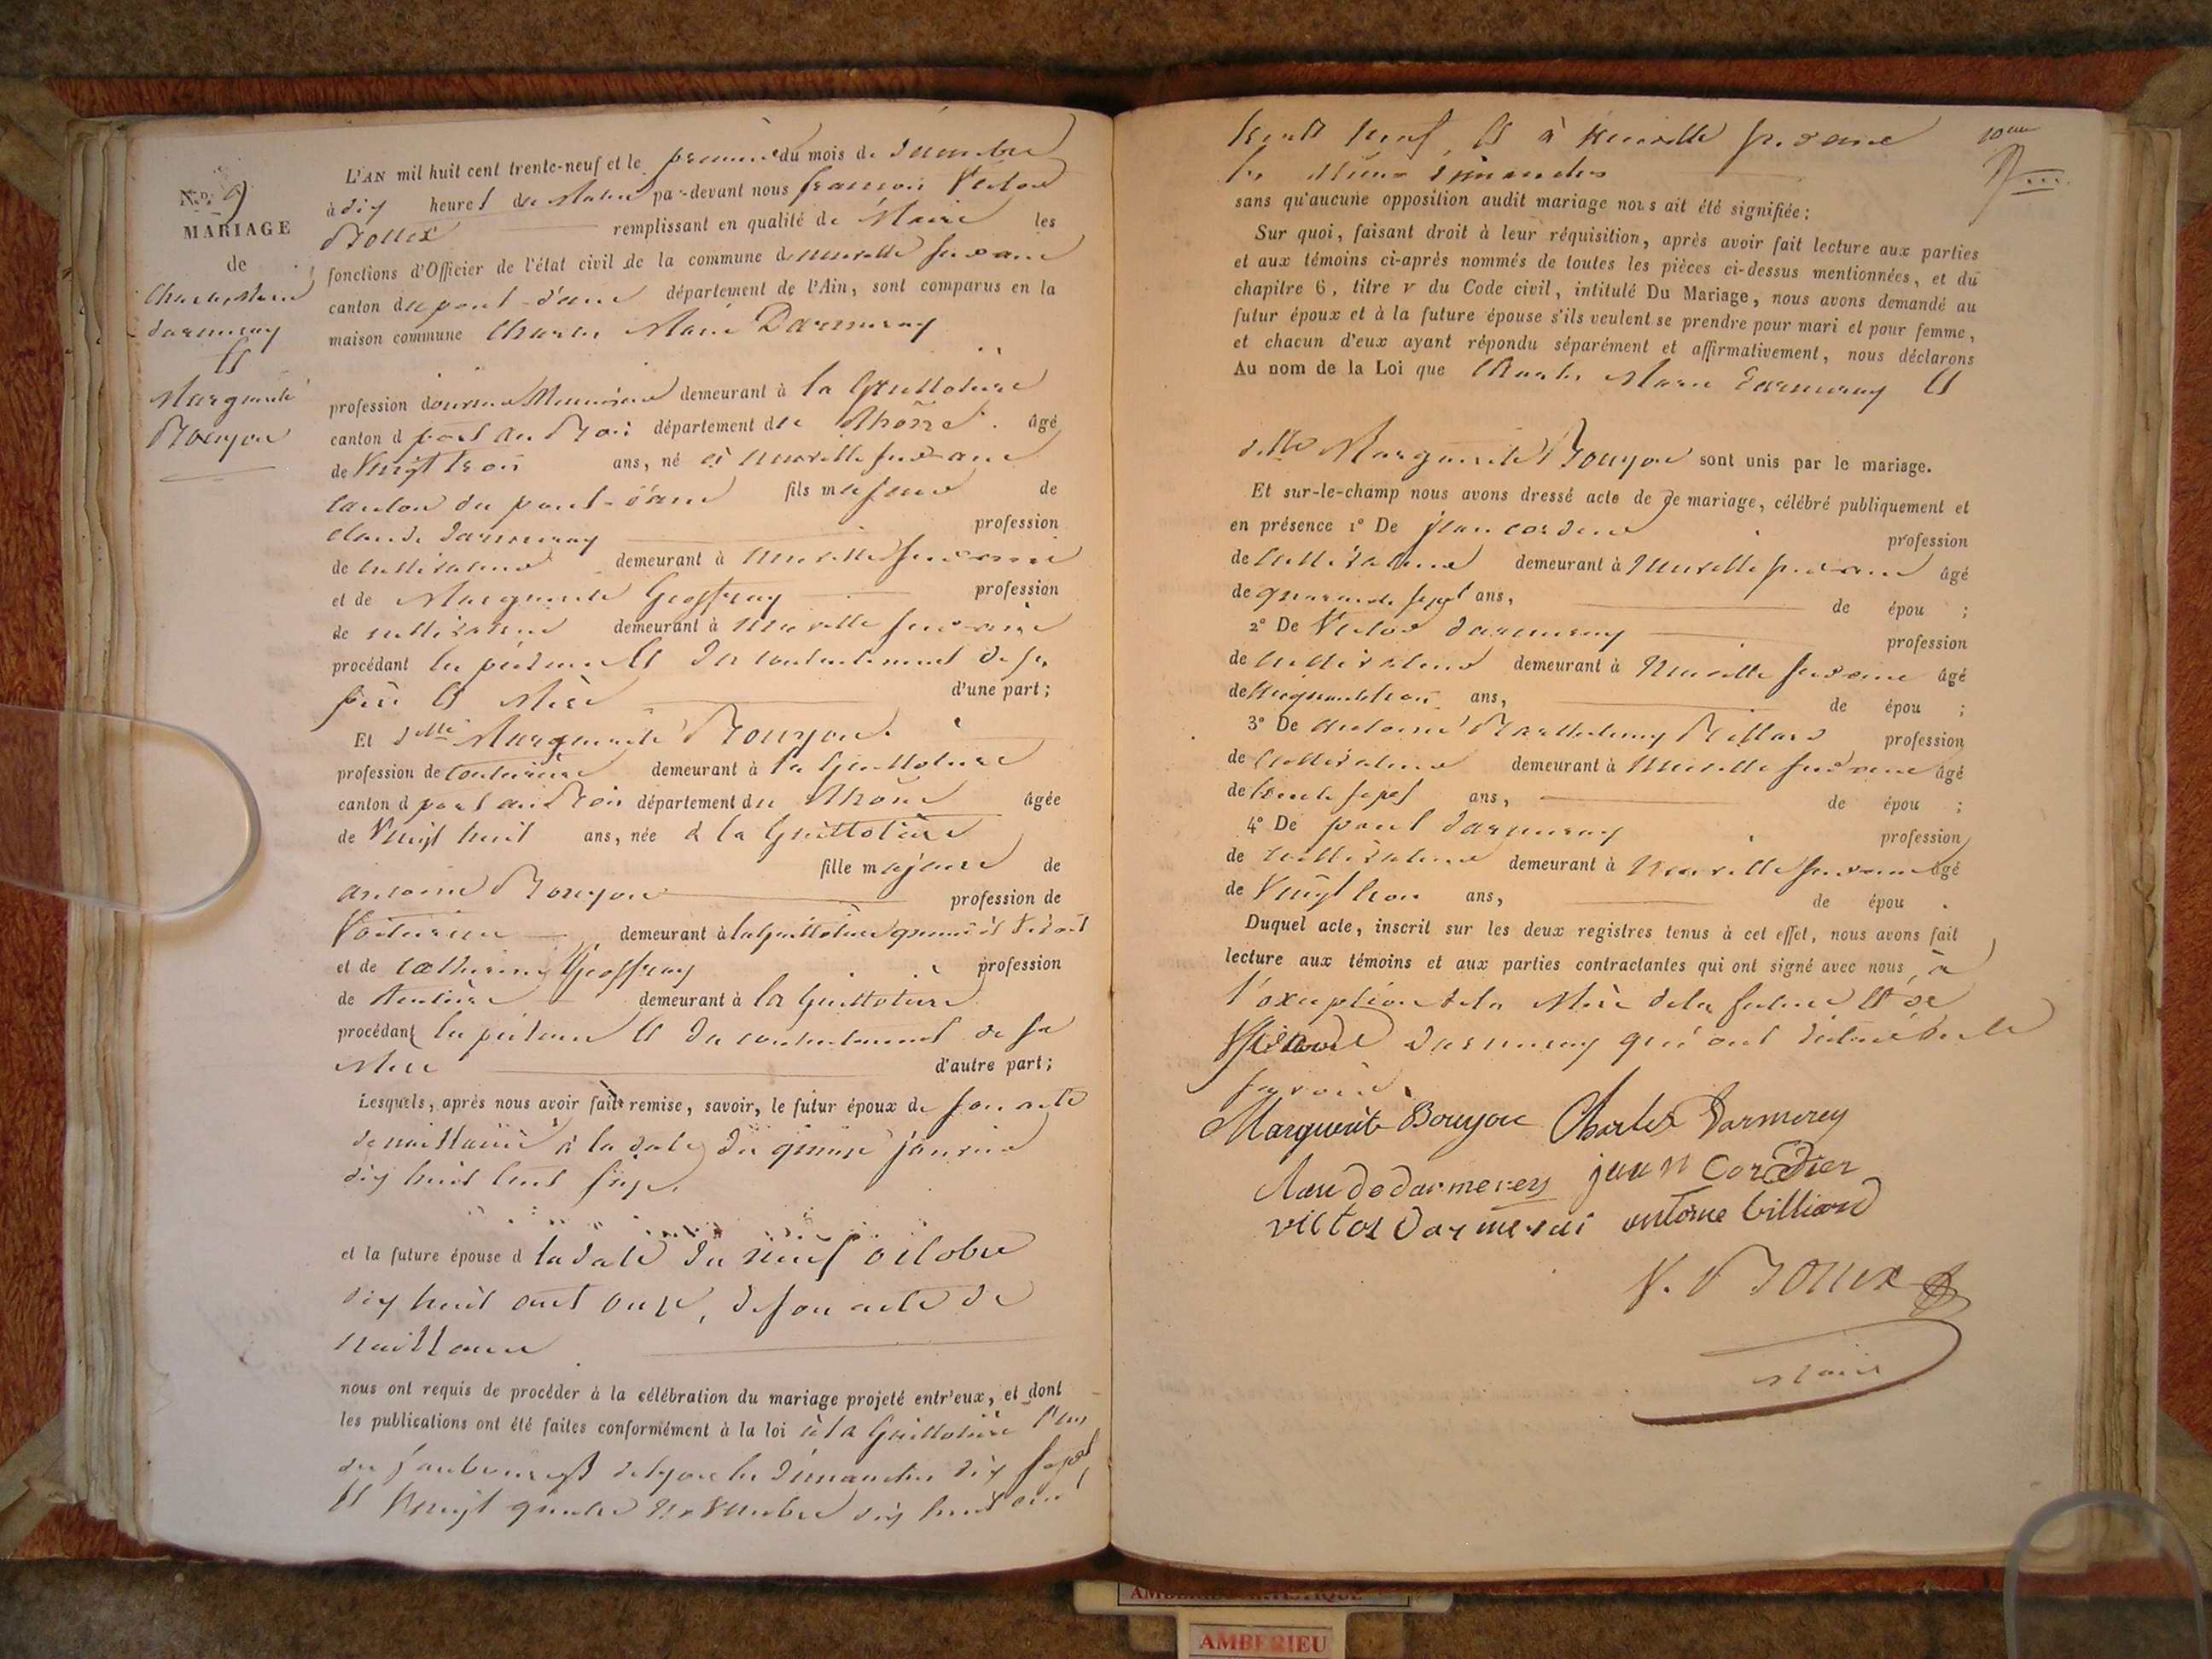 N.º 9
MARIAGE
de
Charles Marie
darmeray
et
Marguerite
Bouyou
L'AN mil huit cent trente-neuf et le premier du mois de décembre
à dix heures du Matin par-devant nous françois Victor
remplissant en qualité de Maire les
fonctions d'Officier de l'état civil de la commune de neuville sur ain
canton du pont-d'ain département de l'Ain, sont comparus en la
maison commune Charles Marie Darmeray
profession d'ouvrier Menuisier demeurant à la Guillotière
canton d département du Rhône âgé
de Vingt trois ans, né à neuville sur ain
canton du pont-d'ain fils majeur de
claude darmeray profession
de cultivateur demeurant à neuville sur ain
et de Marguerite Geoffray profession
de cultivateur demeurant à neuville sur ain
procédant les présence et du consentement de ses
père et Mère d'une part;
Et dlle Marguerite Bouyou
profession de couturière demeurant à la Guillotière
canton d département du Rhône âgée
de Vingt huit ans, née à la Guillotière
fille majeure de
antoine Bouyou profession de
Voiturier demeurant à la Guillotière quand il vivait
et de catherine Geoffray profession
de rentière demeurant à la Guillotière
procédant les présence et du consentement de sa
Mère d'autre part;
Lesquels, après nous avoir fait remise, savoir, le futur époux de son acte
de naissance à la date du quinze janvier
dix huit cent seize.
et la future épouse d la date du neuf octobre
dix huit cent onze, de son acte de
naissance
nous ont requis de procéder à la célébration du mariage projeté entr'eux, et dont
les publications ont été faites conformément à la loi à la Guillotière l'un
des faubourgs de lyon les dimanches dix sept
et Vingt quatre novembre dix huit cent
trente neuf, et à neuville sur ain 10me
les mêmes dimanches
sans qu'aucune opposition audit mariage nous ait été signifiée;
Sur quoi, faisant droit à leur réquisition, après avoir fait lecture aux parties
et aux témoins ci-après nommés de toutes les pièces ci-dessus mentionnées, et du
chapitre 6, titre v du Code civil, intitulé Du Mariage, nous avons demandé au
futur époux et à la future épouse s'ils veulent se prendre pour mari et pour femme,
et chacun d'eux ayant répondu séparément et affirmativement, nous déclarons
Au nom de la Loi que Charles Marie darmeray et
dlle Marguerite Bouyou sont unis par le mariage.
Et sur-le-champ nous avons dressé acte de ce mariage, célébré publiquement et
en présence 1º De jean cordier profession
de cultivateur demeurant à neuville sur ain âgé
de quarante sept ans, de épou ;
2º De Victor darmeray profession
de cultivateur demeurant à neuville sur ain âgé
de cinquante trois ans, de épou ;
3º De antoine Barthelemy Billiard profession
de cultivateur demeurant à neuville sur ain âgé
de trente sept ans, de épou ;
4º De paul darmeray profession
de cultivateur demeurant à neuville sur ain âgé
de Vingt trois ans, de épou .
Duquel acte, inscrit sur les deux registres tenus à cet effet, nous avons fait
lecture aux témoins et aux parties contractantes qui ont signé avec nous, à
l'exception de la Mère de la future et de
darmeray qui ont déclaré ne le
savoir.
Marguerite Bouyou Charles Darmerey
claude darmerey jean Cordier
victor darmerai antoine billiard
maire
AMBERIEU